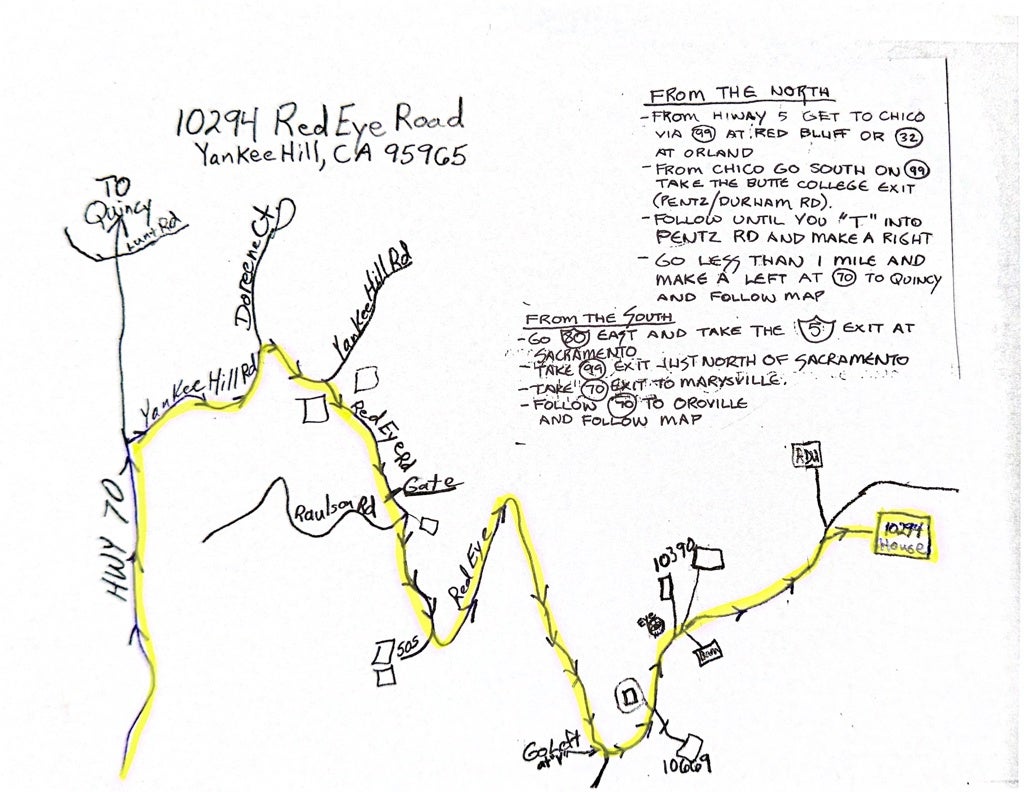 10294 Red Eye Road
Yankee Hill, CA 95965
FROM THE NORTH
- FROM HIWAY 5 GET TO CHICO
VIA 99 AT RED BLUFF OR 32
AT ORLAND
- FROM CHICO GO SOUTH ON 99
TAKE THE BUTTE COLLEGE EXIT
(PENTZ/DURHAM RD).
- FOLLOW UNTIL YOU "T" INTO
PENTZ RD AND MAKE A RIGHT
- GO LESS THAN 1 MILE AND
MAKE A LEFT AT 70 TO QUINCY
AND FOLLOW MAP
FROM THE SOUTH
- GO 80 EAST AND TAKE THE 5 EXIT AT
SACRAMENTO
- TAKE 99 EXIT JUST NORTH OF SACRAMENTO
- TAKE 70 EXIT TO MARYSVILLE.
- FOLLOW 70 TO OROVILLE
AND FOLLOW MAP
TO
Quincy
Lunt Rd
Doreene Ct
Yankee Hill Rd
Yankee Hill Rd
Red Eye Rd
Gate
Raulson Rd
HWY 70
Red Eye
505
Go Left
at "Y"
10669
EYE
10390
Barn
ADU
10294
House